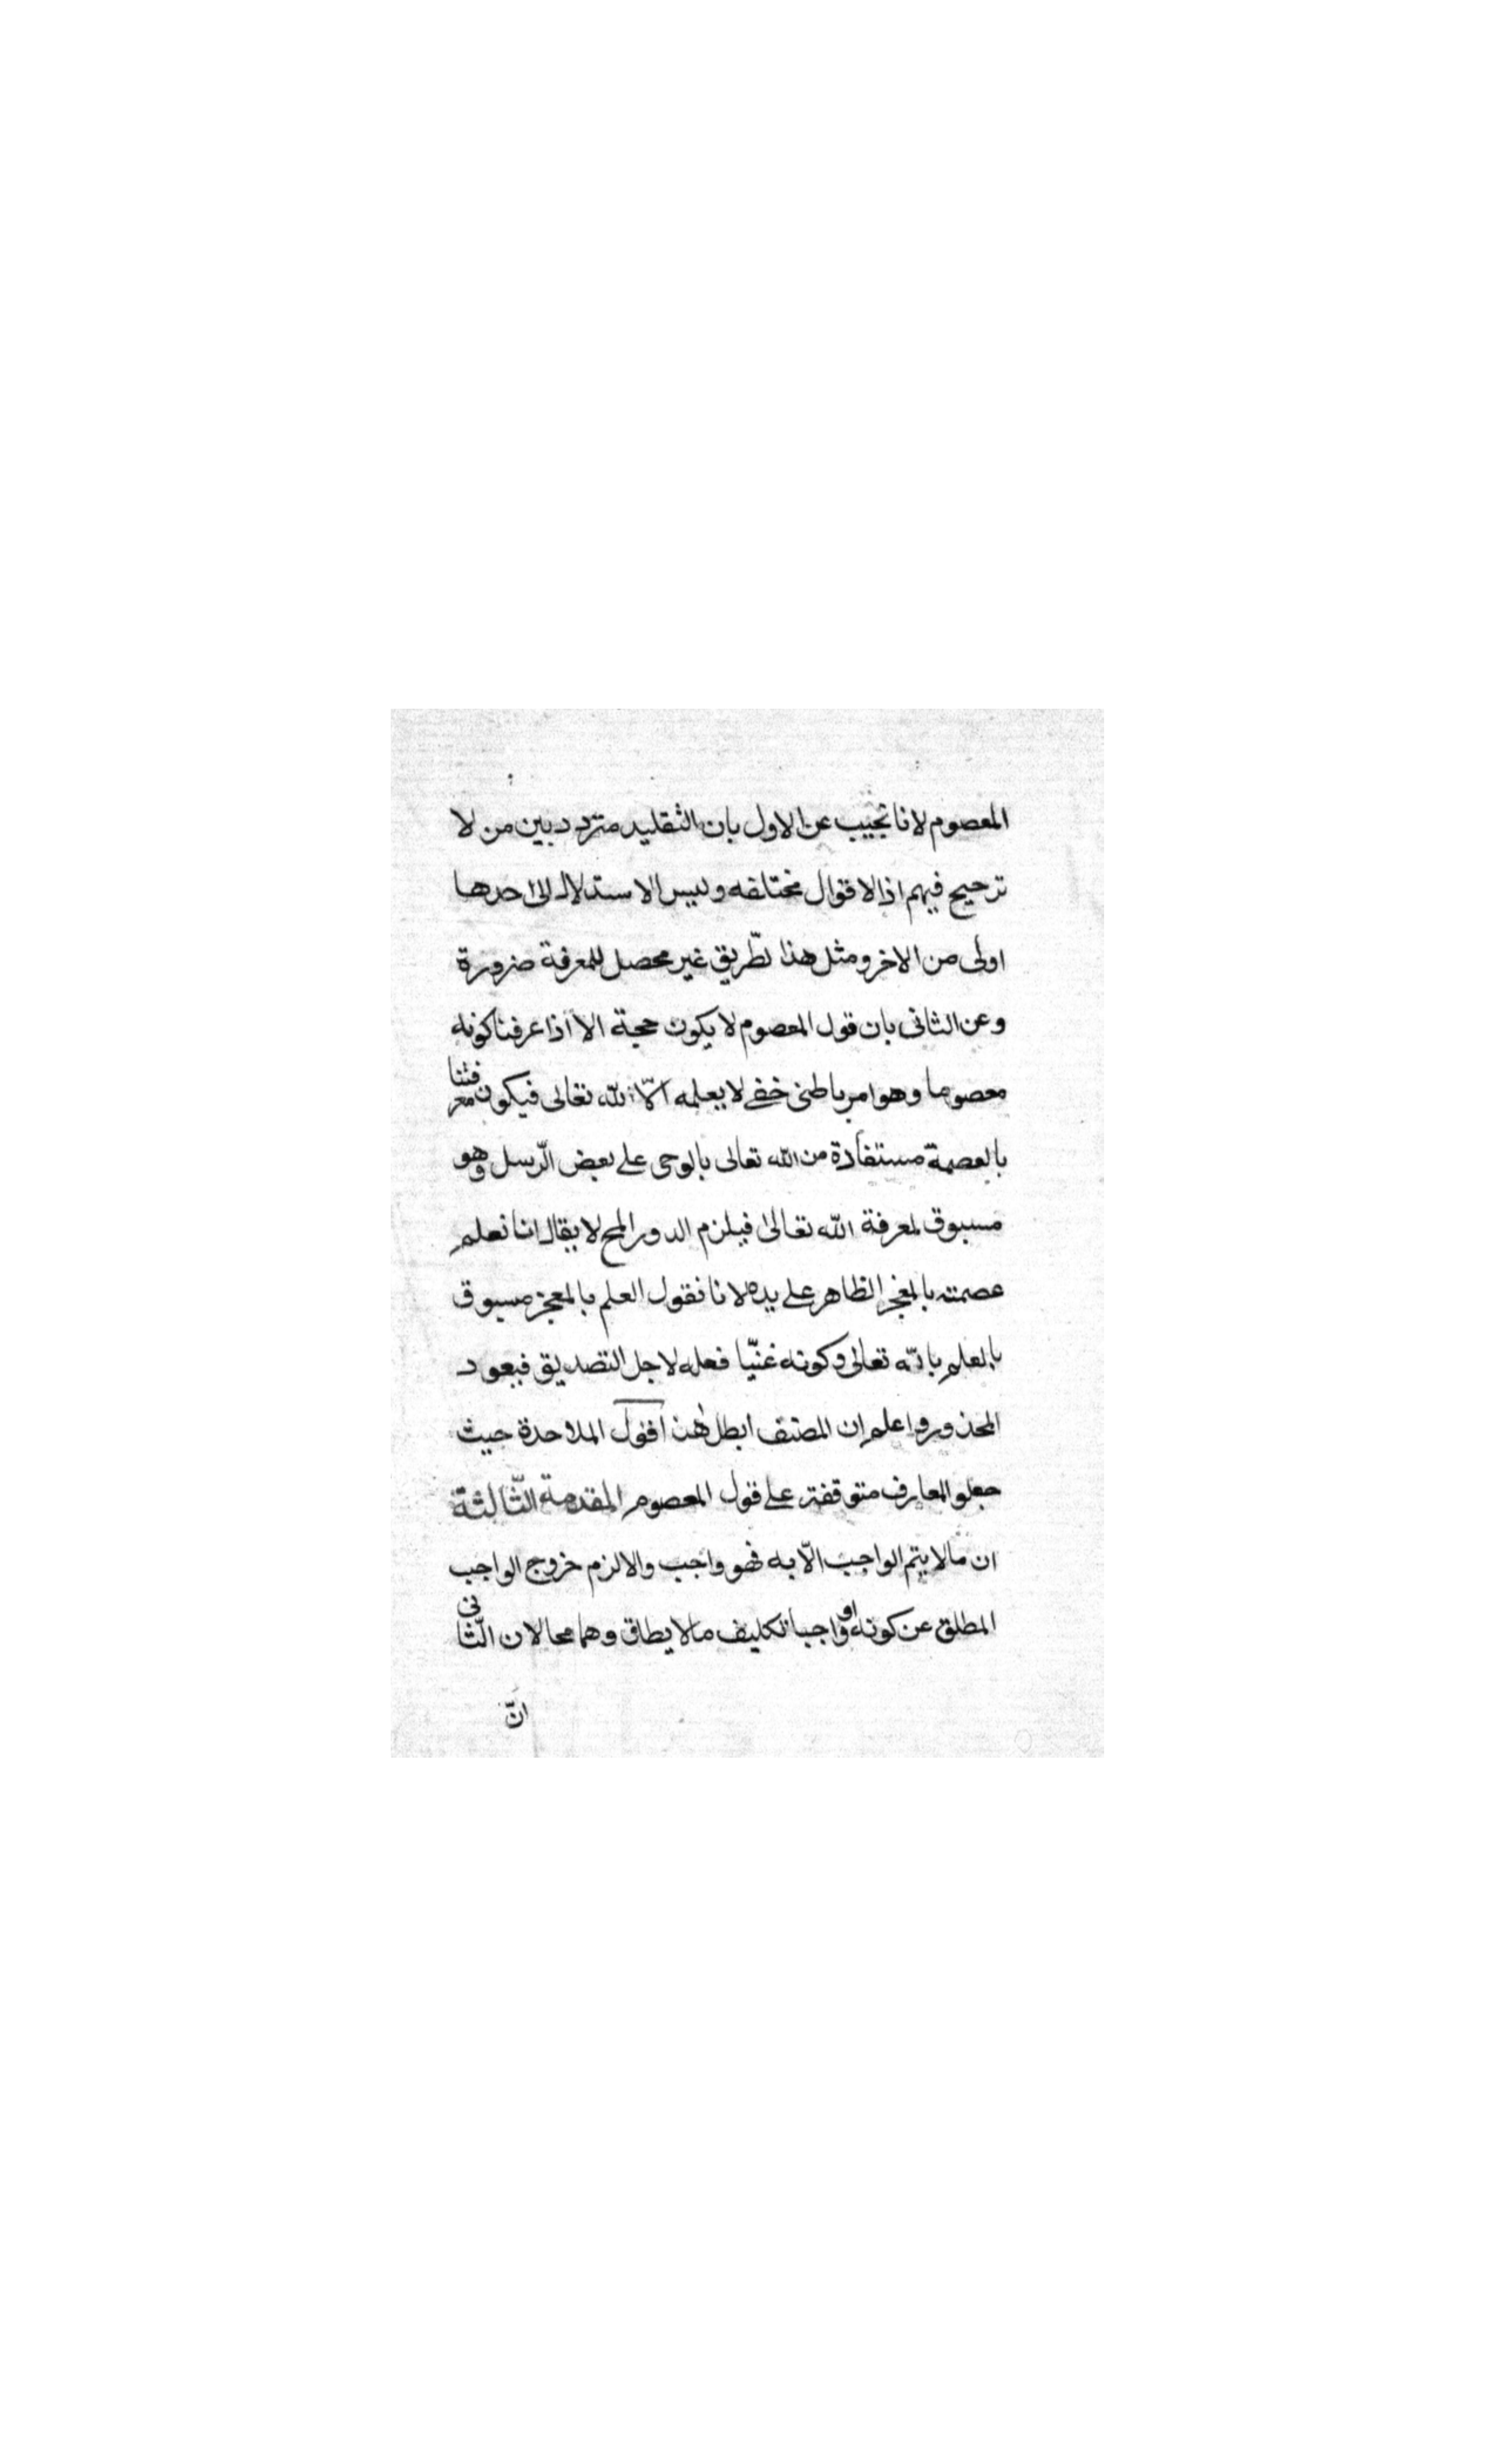 المعصوم لانا نجيب عن الاول بان التقليد متردد بين من لا
ترجيح فيهم اذ الاقوال مختلفه وليس الاستدلال الى احدها
اولى من الاخر ومثل هذا لطّريق غير محصل للمعرفة ضرورة
وعن الثانى بان قول المعصوم لا يكون حجة الا اذا عرفنا كونه
معصوما وهو امر باطنى خفے لا يعلمه الّا الله تعالى فيكون معرفتنا
بالعصمة مستفادة من الله تعالى بالوحى على بعض الرّسل وهو
مسبوق لمعرفة الله تعالى فيلزم الدور المح لا يقال انا نعلم
عصمته بالمعجز الظاهر على يده لانا نقول العلم بالمعجز مسبوق
بالعلم بالله تعالى وكونه غنيّا فعله لاجل التصديق فيعود
المحذور واعلم ان المصنف ابطل هذا قول الملاحدة حيث
جعلو المعارف متوقفة على قول المعصوم المقدمة الثّالثة
ان مالا يتم الواجب الّا به فهو واجب والا لزم خروج الواجب
المطلق عن كونه واجبا او تكليف مالا يطاق وهما محالان الثّانى
انّ